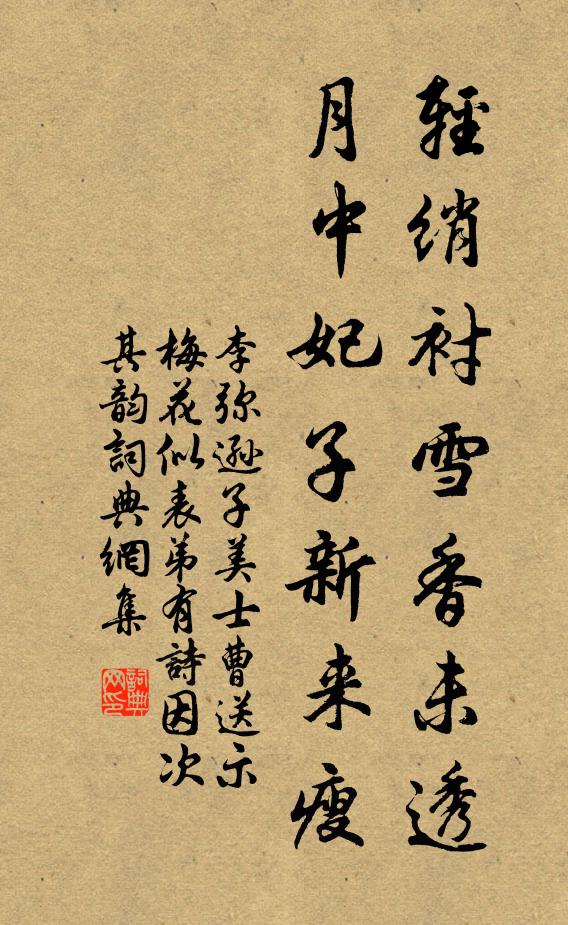 輕綃衬雪香未透
月中妃子新来瘦
李弥遜子美士曹送示
梅花似表弟有詩因次
其韵詞典網集
詞典
网印